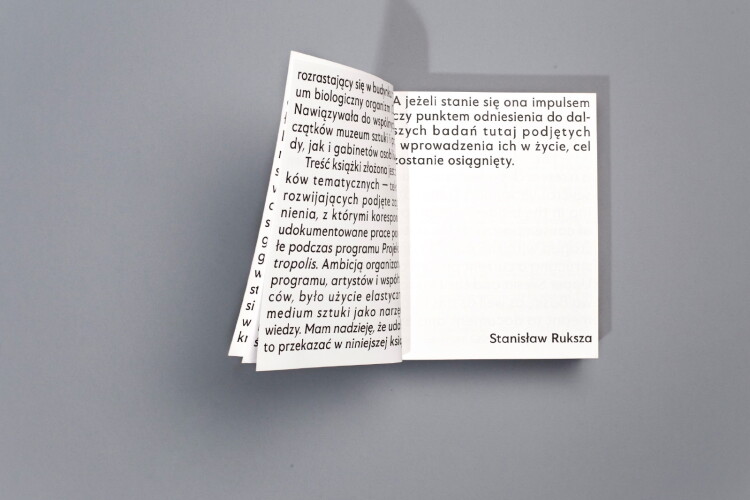 rozrastający się w budynku
um biologiczny organizm
Nawiązywała do wspóln
czątków muzeum sztuki i p
dy, jak i gabinetów osob
Treść książki złożona jes
ków tematycznych — te
rozwijających podjęte za
nienia, z którymi korespon
udokumentowane prace po
łe podczas programu Proje
tropolis. Ambicją organizat
programu, artystów i współt
ców, było użycie elastyczn
medium sztuki jako narzę
wiedzy. Mam nadzieję, że uda
to przekazać w niniejszej ksią
A jeżeli stanie się ona impulsem
czy punktem odniesienia do dal-
szych badań tutaj podjętych
i wprowadzenia ich w życie, cel
zostanie osiągnięty.
Stanisław Ruksza